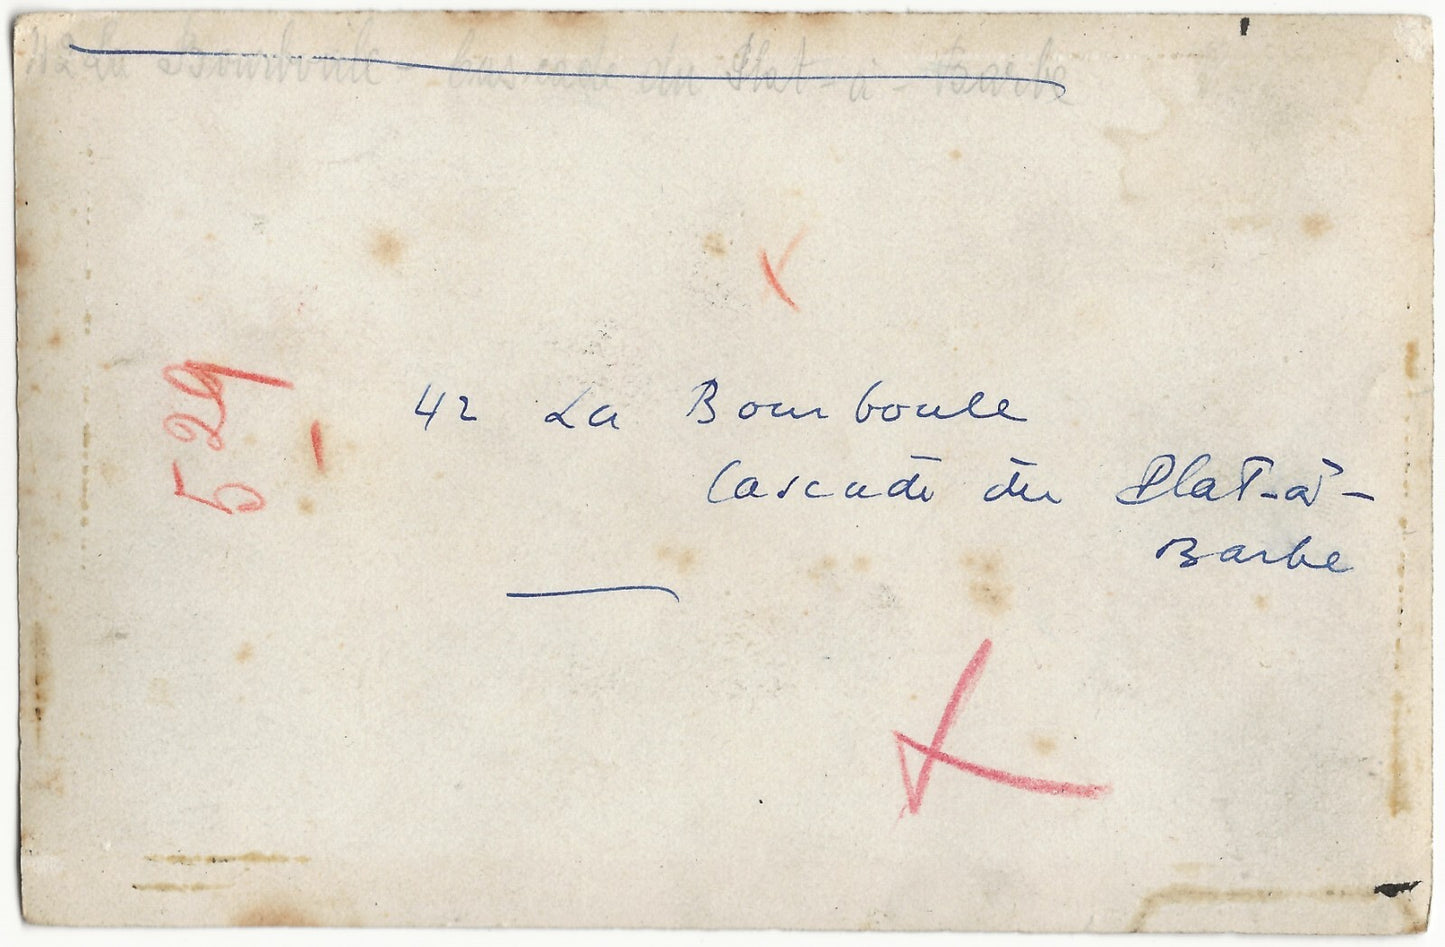 42 La Bourboule - Cascade du Plat-à-Barbe
529
42 La Bourboule
Cascade du Plat-à-
Barbe